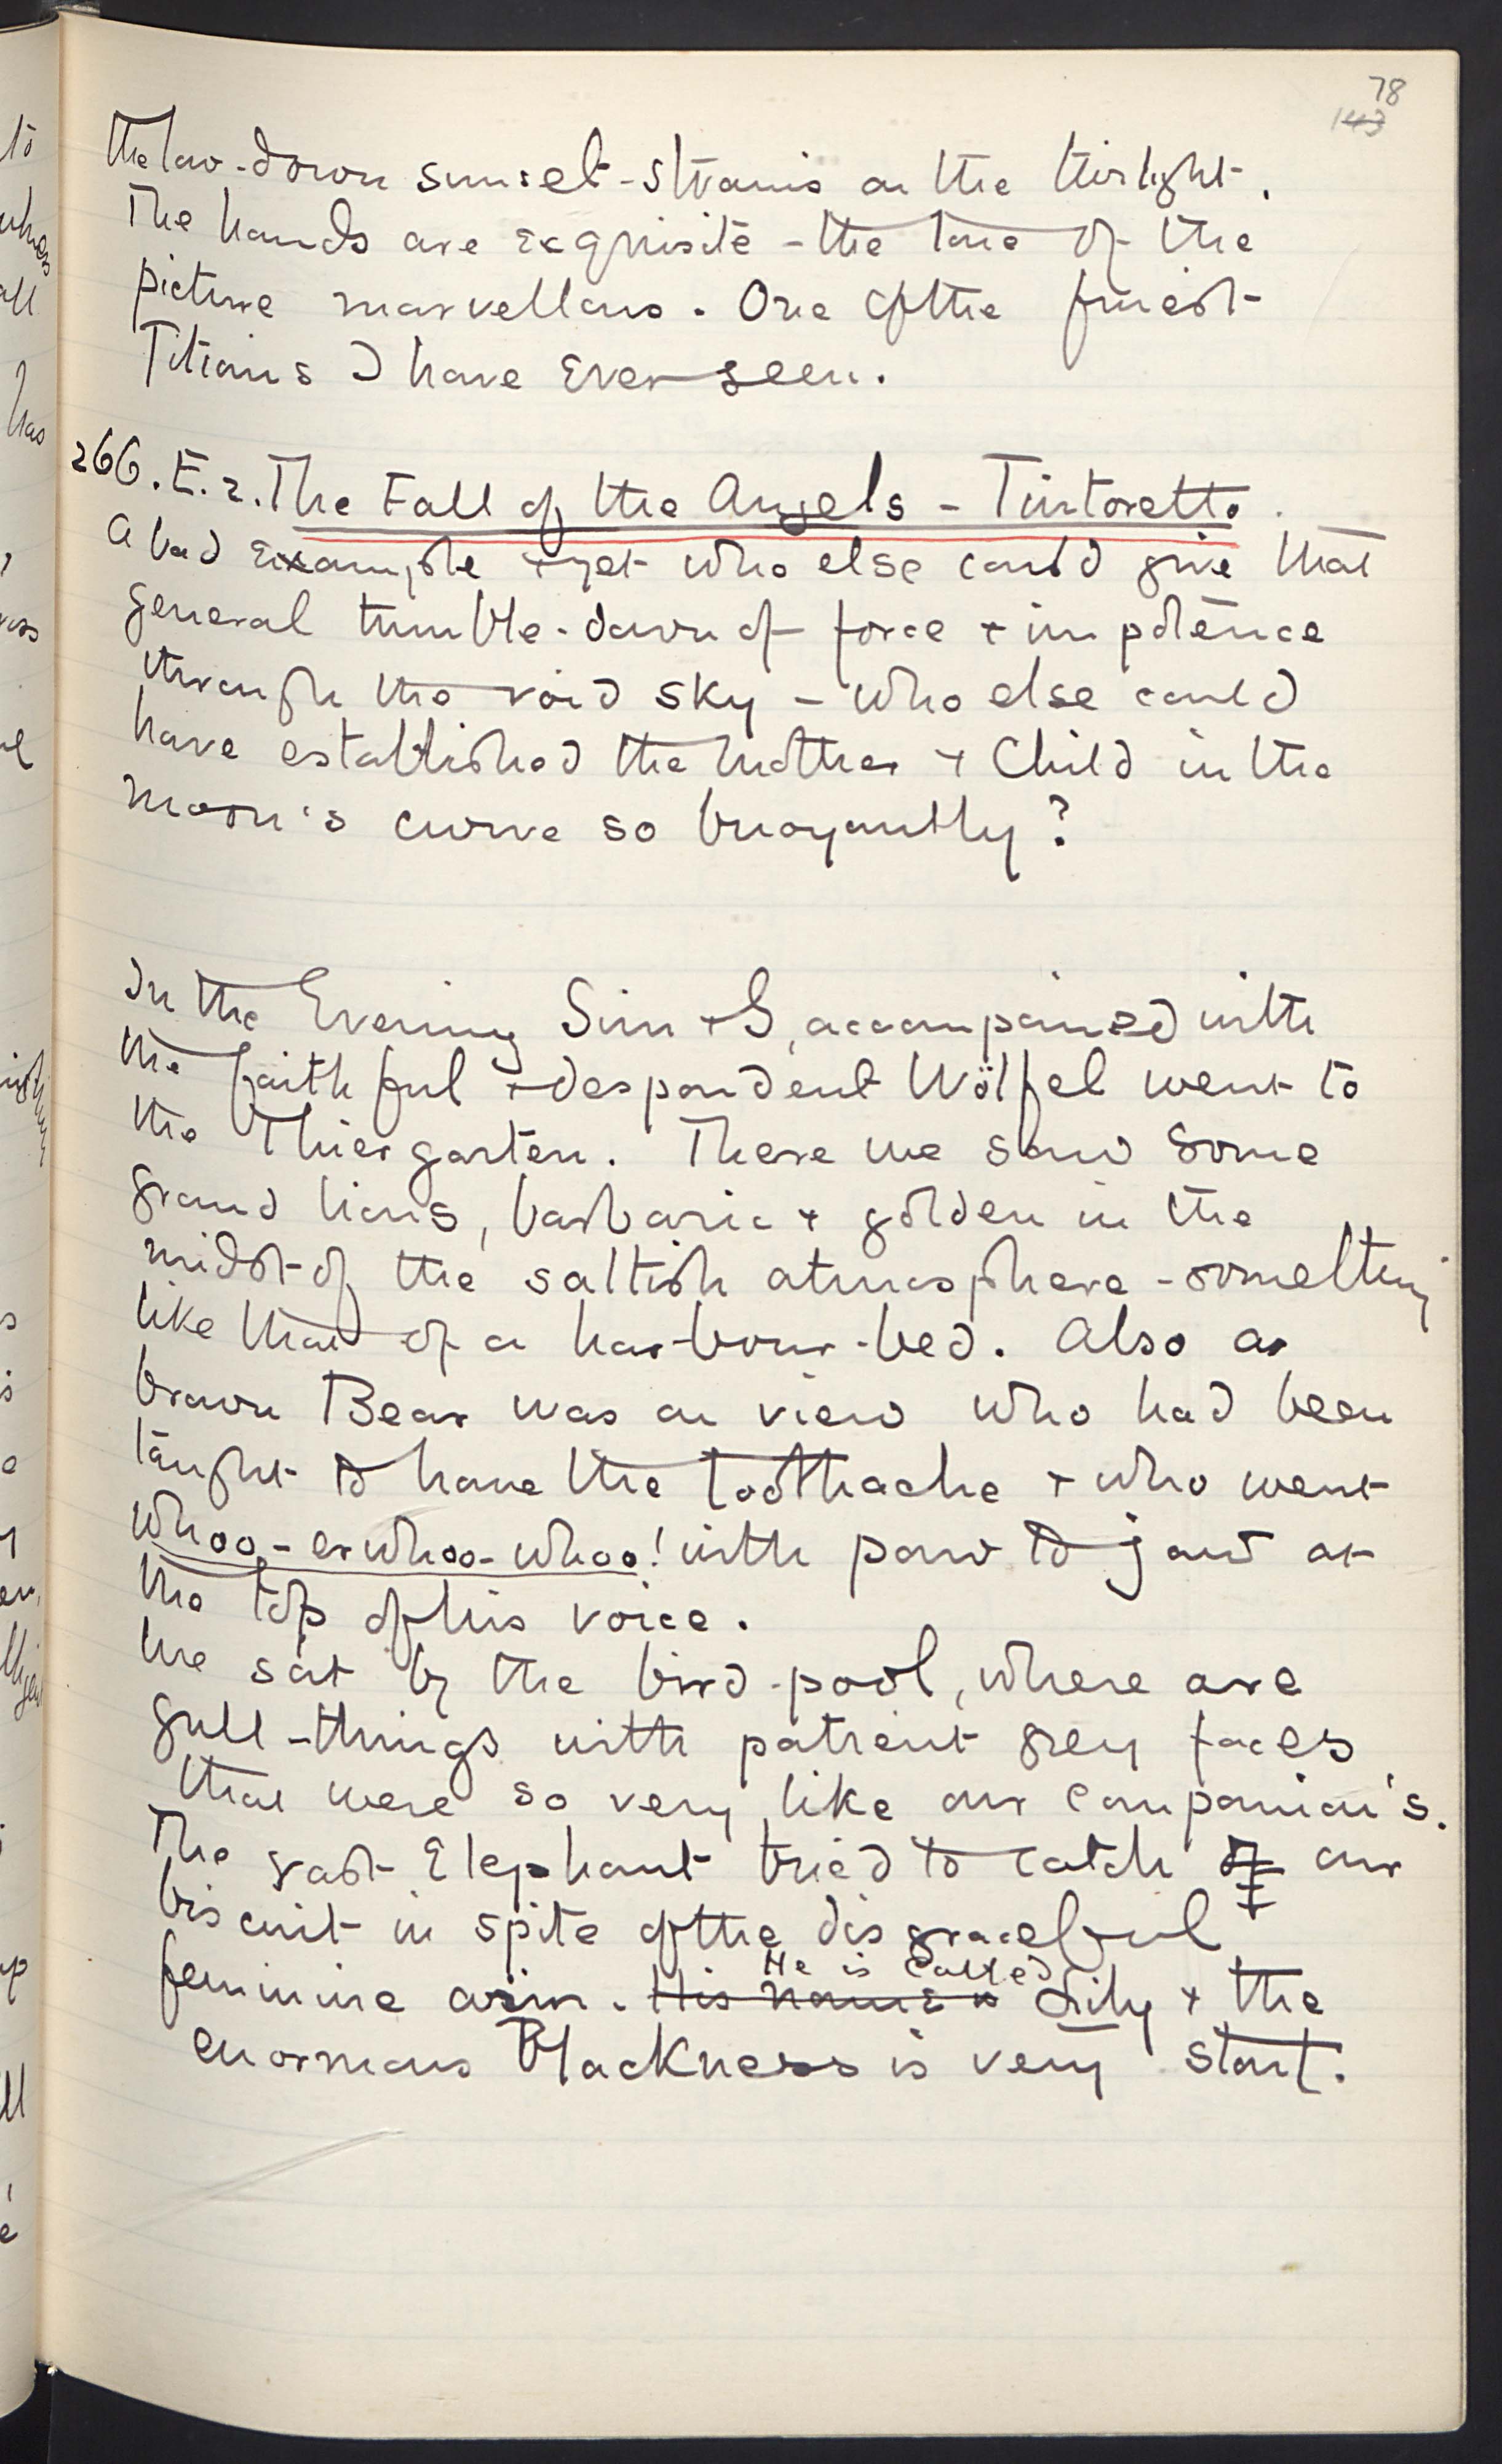 78
143
the low-down sunset-strains on the twilight.
The hands are exquisite - the tone of the
picture marvellous. One of the finest
Titians I have ever seen.
266. E. 2. The Fall of the Angels - Tintoretto.
A bad example + yet who else could give that
general tumble-down of force + impotence
through the void sky - who else could
have established the Mother + Child in the
moon's curve so buoyantly?
In the Evening Sim + I, accompanied with
the faithful + despondent Wölfel went to
the Thiergarten. There we saw some
grand lions, barbaric + golden in the
midst of the saltish atmosphere - something
like that of a harbour-bed. Also a
brown Bear was on view who had been
taught to have the toothache + who went
whoo-er whoo-whoo! with paw to jaw at
the top of his voice.
We sat by the bird-pool, where are
gull-things with patient grey faces
that were so very like our companion's.
The vast Elephant tried to catch of our
biscuit in spite of the disgraceful
feminine aim. His name is He is called Lily + the
enormous Blackness is very stout.